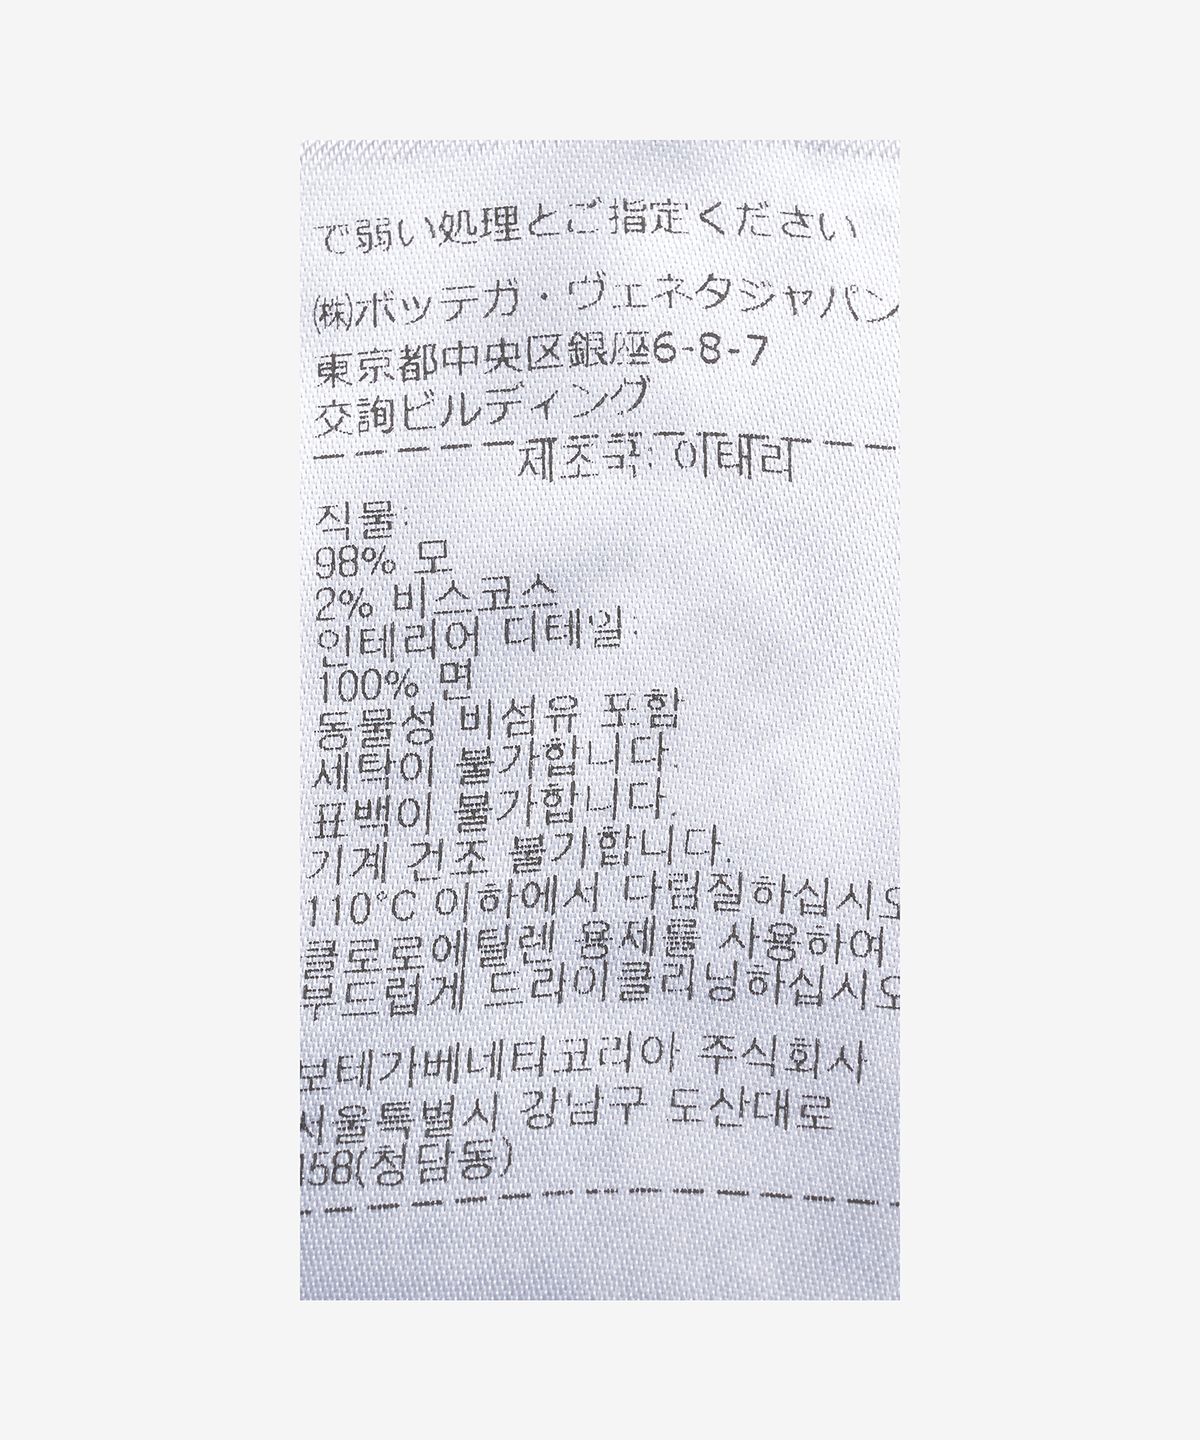 で弱い処理とご指定ください
㈱ボッテガ・ヴェネタジャパン
東京都中央区銀座6-8-7
交詢ビルディング
제조국: 이태리
직물:
98% 모
2% 비스코스
인테리어 디테일:
100% 면
동물성 비섬유 포함
세탁이 불가합니다.
표백이 불가합니다.
기계 건조 불가합니다.
110°C 이하에서 다림질하십시오
클로로에틸렌 용제를 사용하여
부드럽게 드라이클리닝하십시오
보테가베네타코리아 주식회사
서울특별시 강남구 도산대로
458(청담동)